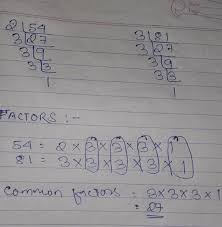 2 | 54    3 | 81
3 | 27    3 | 27
3 | 9    3 | 9
3 | 3    3 | 3
1    1
FACTORS :-
54 = 2 × 3 × 3 × 3 × 1
81 = 3 × 3 × 3 × 3 × 1
Common factors = 3 × 3 × 3 × 1
= 27